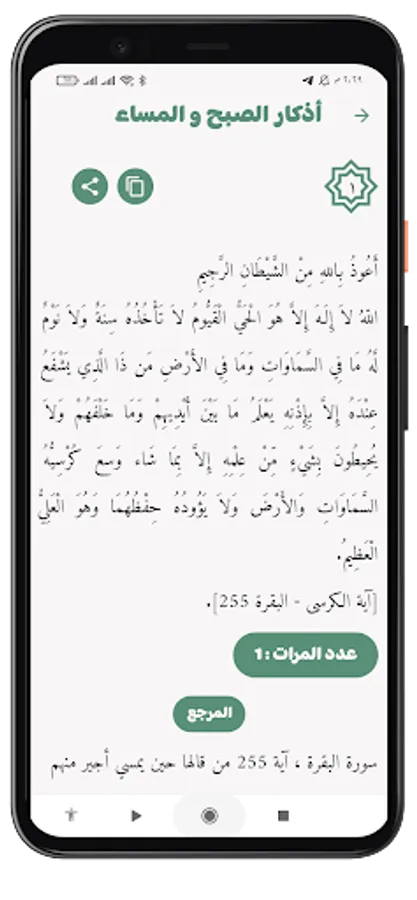 ٦:٢٩ م
أذكار الصبح و المساء
١
أَعُوذُ بِاللهِ مِنْ الشَّيْطَانِ الرَّجِيمِ
اللهُ لاَ إِلَـهَ إِلاَّ هُوَ الْحَيُّ الْقَيُّومُ لاَ تَأْخُذُهُ سِنَةٌ وَلاَ نَوْمٌ
لَّهُ مَا فِي السَّمَاوَاتِ وَمَا فِي الأَرْضِ مَن ذَا الَّذِي يَشْفَعُ
عِنْدَهُ إِلاَّ بِإِذْنِهِ يَعْلَمُ مَا بَيْنَ أَيْدِيهِمْ وَمَا خَلْفَهُمْ وَلاَ
يُحِيطُونَ بِشَيْءٍ مِّنْ عِلْمِهِ إِلاَّ بِمَا شَاء وَسِعَ كُرْسِيُّهُ
السَّمَاوَاتِ وَالأَرْضَ وَلاَ يَؤُودُهُ حِفْظُهُمَا وَهُوَ الْعَلِيُّ
الْعَظِيمُ.
[آية الكرسى - البقرة 255].
عدد المرات : 1
المرجع
سورة البقرة ، آية 255 من قالها حين يمسي أجير منهم